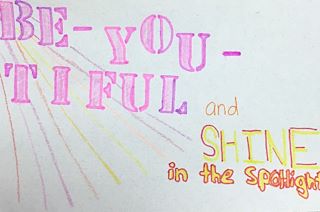 BE-YOU-
TIFUL
and
SHINE
in the spotlight